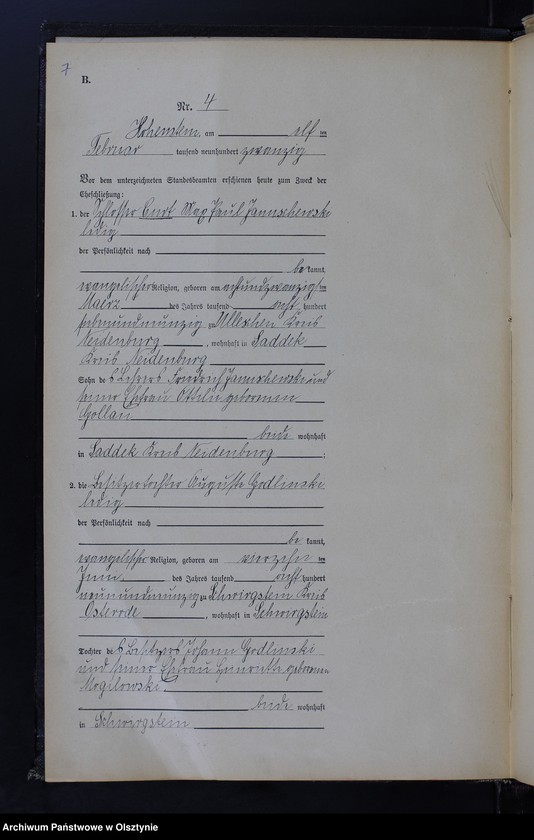 7
B.
Nr. 4
Hohenstein, am elften
Februar tausend neunhundert zwanzig
Vor dem unterzeichneten Standesbeamten erschienen heute zum Zweck der
Eheschließung:
1. der Schlosser Curt Max Paul Jannschewski
ledig
der Persönlichkeit nach
be kannt,
evangelischer Religion, geboren am achtundzwanzigsten
Maerz des Jahres tausend acht hundert
siebenundneunzig zu Kreis
Neidenburg, wohnhaft in Saddek
Kreis Neidenburg
Sohn des Lehrers Friedrich Jannschewski und
seiner Ehefrau geborenen
Gollan
beide wohnhaft
in Saddek Kreis Neidenburg;
2. die Besitzertochter Auguste Godlinski
ledig
der Persönlichkeit nach
be kannt,
evangelischer Religion, geboren am vierzehnten
Juni des Jahres tausend acht hundert
neunundneunzig zu Schwirgstein Kreis
Osterode, wohnhaft in Schwirgstein
Tochter des Besitzers Johann Godlinski
und seiner Ehefrau Henriette geborene
Mogilowski
beide wohnhaft
in Schwirgstein
Archiwum Państwowe w Olsztynie